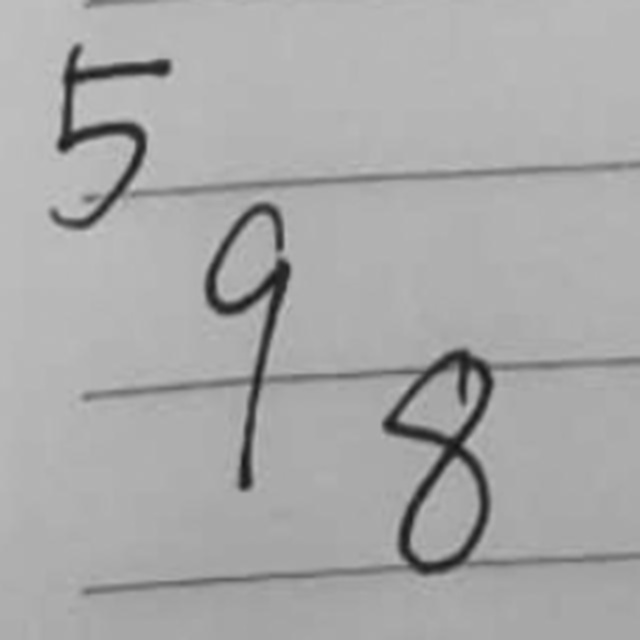 5
9
8